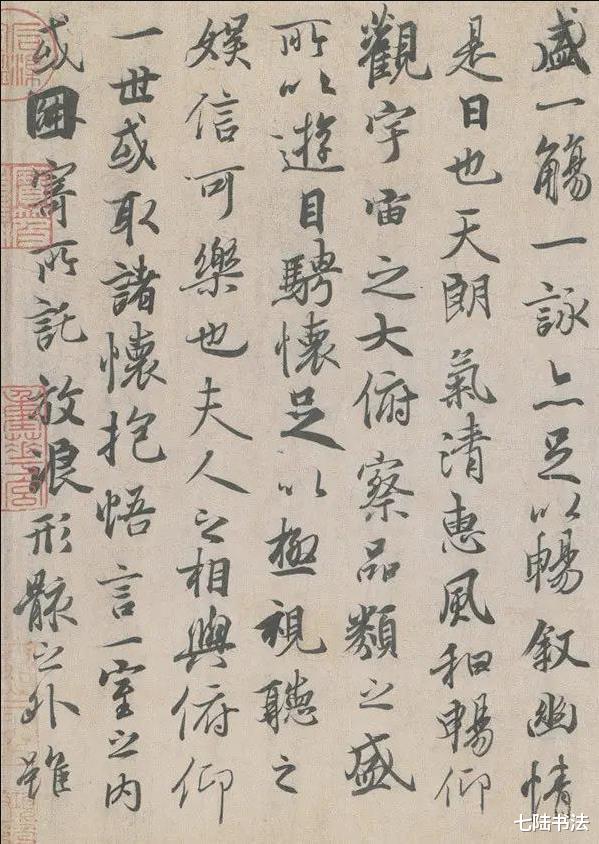 盛一觴一詠亦足以暢叙幽情
是日也天朗氣清惠風和暢仰
觀宇宙之大俯察品類之盛
所以遊目騁懷足以極視聽之
娛信可樂也夫人之相與俯仰
一世或取諸懷抱悟言一室之內
或因寄所託放浪形骸之外雖
七陆书法